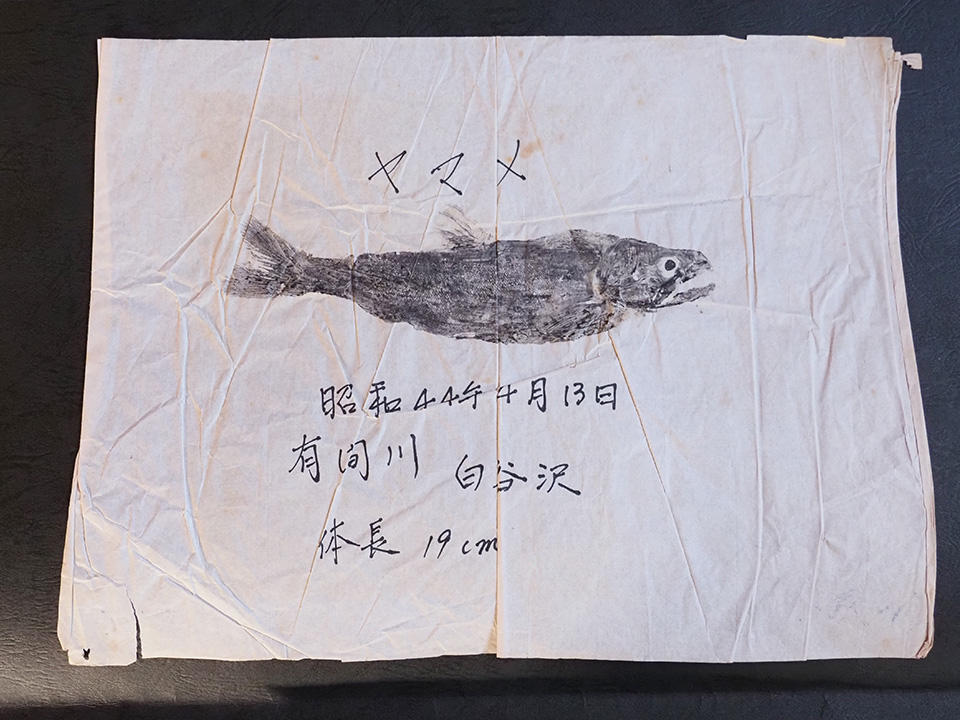 ヤマメ
昭和44年4月13日
有間川 白谷沢
体長 19cm